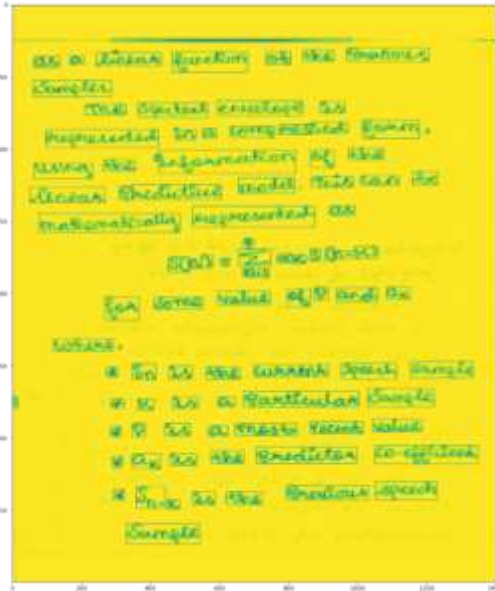 as a linear function of the Previous
Samples
The Spectral envelope is
represented in a compressed form,
using the Information of the
linear Predictive model. This can be
mathematically represented as
S(n) =
for some value of P and ak
where,
* Sn is the current speech sample
* k is a Particular Sample
* P is a most recent value
* ak is the Predictor co-efficient
* Sn-k is the Previous speech
Sample